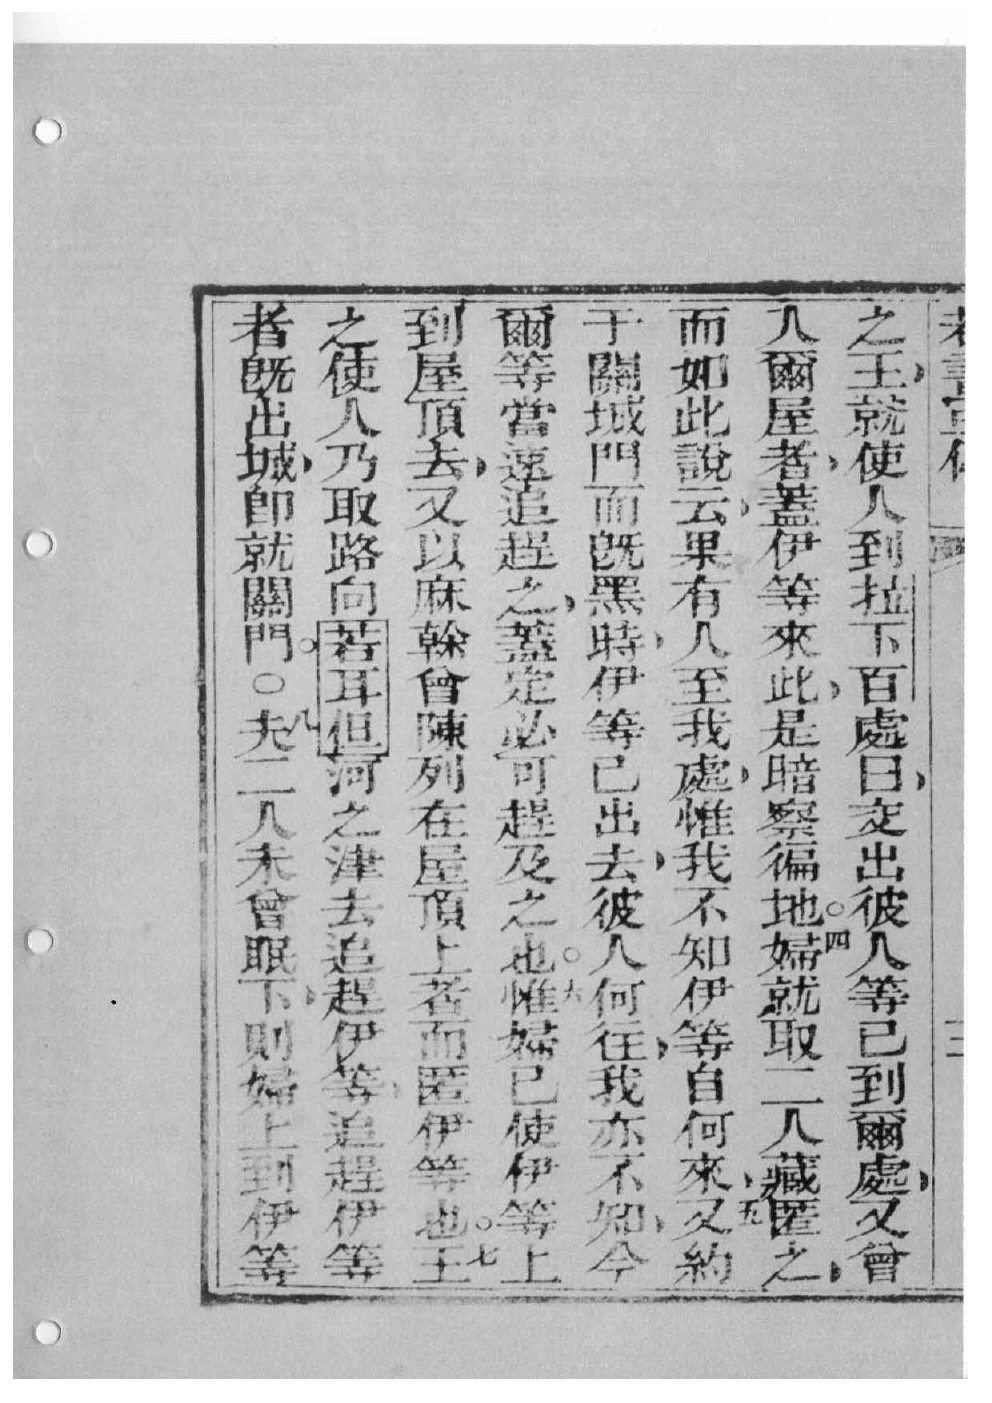 之王就使人到拉下百處曰交出彼人等已到爾處又曾
入爾屋者蓋伊等來此是暗察徧地○四婦就取二人藏匿之
而如此說云果有人至我處惟我不知伊等自何來五又約
于關城門而旣黑時伊等已出去彼人何往我亦不知今
爾等當速追趕之蓋定必可趕及之也○六惟婦已使伊等上
到屋頂去又以麻榦曾陳列在屋頂上者而匿伊等也○七王
之使人乃取路向若耳但河之津去追趕伊等追趕伊等
者旣出城卽就關門○○八夫二人未曾眠下則婦上到伊等